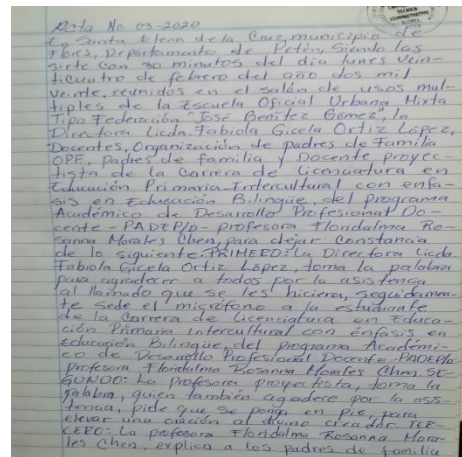 Acta No. 03-2020
En Santa Elena de la Cruz, municipio de
Flores, Departamento de Petén, Siendo las
siete con 30 minutos del día lunes vein-
ticuatro de febrero del año dos mil
veinte, reunidos en el salón de usos mul-
tiples de la Escuela Oficial Urbana Mixta
Tipo Federación "José Benítez Gómez", la
Directora Licda. Fabiola Gicela Ortiz López,
Docentes, Organización de padres de Familia
OPF, padres de familia y Docente proyec-
tista de la Carrera de Licenciatura en
Educación Primaria Intercultural con enfa-
sis en Educación Bilingüe, del programa
Académico de Desarrollo Profesional Do-
cente -PADEP/D- profesora Floridalma Ro-
sanna Morales Chen, para dejar Constancia
de lo siguiente. PRIMERO: La Directora Licda.
Fabiola Gicela Ortiz López, toma la palabra
para agradecer a todos por la asistencia
al llamado que se les hiciera, seguidamen-
te sede el micrófono a la estudiante
de la Carrera de Licenciatura en Educa-
ción Primaria Intercultural con énfasis en
Educación Bilingüe, del programa Académi-
co de Desarrollo Profesional Docente -PADEP/D-
profesora Floridalma Rosanna Morales Chen. SE-
GUNDO: La profesora proyectista, toma la
palabra, quien también agadece por la asis-
tencia, pide que se ponga en pie, para
elevar una oración al divino creador TER-
CERO: La profesora Floridalma Rosanna Mora-
les Chen, explica a los padres de familia